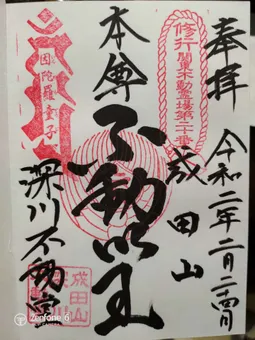 奉拝
令和二年二月二十四日
修行 関東不動霊場第二十番
成田山
本尊
不動明王
因陀羅童子
深川不動堂
成田山
Zenfone 6